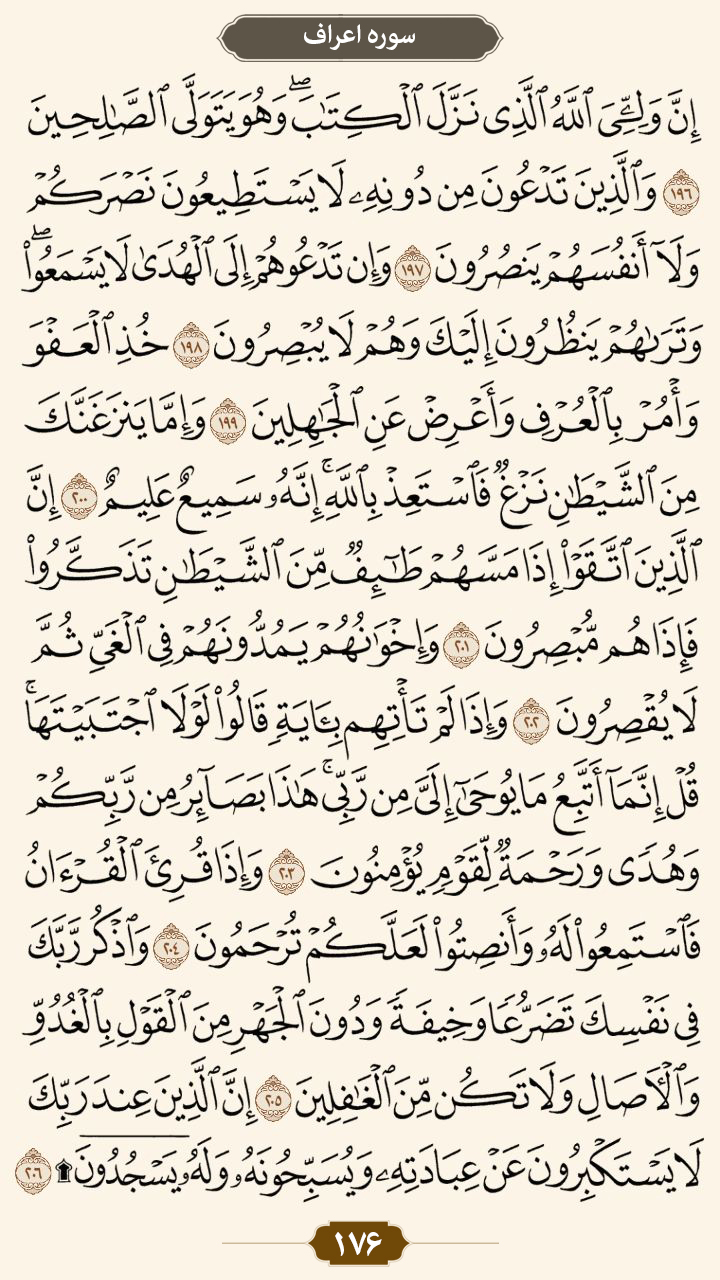 سوره اعراف
إِنَّ وَلِـِّۧيَ ٱللَّهُ ٱلَّذِى نَزَّلَ ٱلۡكِتَٰبَۖ وَهُوَ يَتَوَلَّى ٱلصَّٰلِحِينَ
١٩٦ وَٱلَّذِينَ تَدۡعُونَ مِن دُونِهِۦ لَا يَسۡتَطِيعُونَ نَصۡرَكُمۡ
وَلَآ أَنفُسَهُمۡ يَنصُرُونَ ١٩٧ وَإِن تَدۡعُوهُمۡ إِلَى ٱلۡهُدَىٰ لَا يَسۡمَعُواْۖ
وَتَرَىٰهُمۡ يَنظُرُونَ إِلَيۡكَ وَهُمۡ لَا يُبۡصِرُونَ ١٩٨ خُذِ ٱلۡعَفۡوَ
وَأۡمُرۡ بِٱلۡعُرۡفِ وَأَعۡرِضۡ عَنِ ٱلۡجَٰهِلِينَ ١٩٩ وَإِمَّا يَنزَغَنَّكَ
مِنَ ٱلشَّيۡطَٰنِ نَزۡغٞ فَٱسۡتَعِذۡ بِٱللَّهِۚ إِنَّهُۥ سَمِيعٌ عَلِيمٌ ٢٠٠ إِنَّ
ٱلَّذِينَ ٱتَّقَوۡاْ إِذَا مَسَّهُمۡ طَٰٓئِفٞ مِّنَ ٱلشَّيۡطَٰنِ تَذَكَّرُواْ
فَإِذَا هُم مُّبۡصِرُونَ ٢٠١ وَإِخۡوَٰنُهُمۡ يَمُدُّونَهُمۡ فِى ٱلۡغَىِّ ثُمَّ
لَا يُقۡصِرُونَ ٢٠٢ وَإِذَا لَمۡ تَأۡتِهِم بِـَٔايَةٖ قَالُواْ لَوۡلَا ٱجۡتَبَيۡتَهَاۚ
قُلۡ إِنَّمَآ أَتَّبِعُ مَا يُوحَىٰٓ إِلَىَّ مِن رَّبِّىۚ هَٰذَا بَصَآئِرُ مِن رَّبِّكُمۡ
وَهُدٗى وَرَحۡمَةٞ لِّقَوۡمٖ يُؤۡمِنُونَ ٢٠٣ وَإِذَا قُرِئَ ٱلۡقُرۡءَانُ
فَٱسۡتَمِعُواْ لَهُۥ وَأَنصِتُواْ لَعَلَّكُمۡ تُرۡحَمُونَ ٢٠٤ وَٱذۡكُر رَّبَّكَ
فِى نَفۡسِكَ تَضَرُّعٗا وَخِيفَةٗ وَدُونَ ٱلۡجَهۡرِ مِنَ ٱلۡقَوۡلِ بِٱلۡغُدُوِّ
وَٱلۡأٓصَالِ وَلَا تَكُن مِّنَ ٱلۡغَٰفِلِينَ ٢٠٥ إِنَّ ٱلَّذِينَ عِندَ رَبِّكَ
لَا يَسۡتَكۡبِرُونَ عَنۡ عِبَادَتِهِۦ وَيُسَبِّحُونَهُۥ وَلَهُۥ يَسۡجُدُونَ ۩ ٢٠٦
۱۷۶